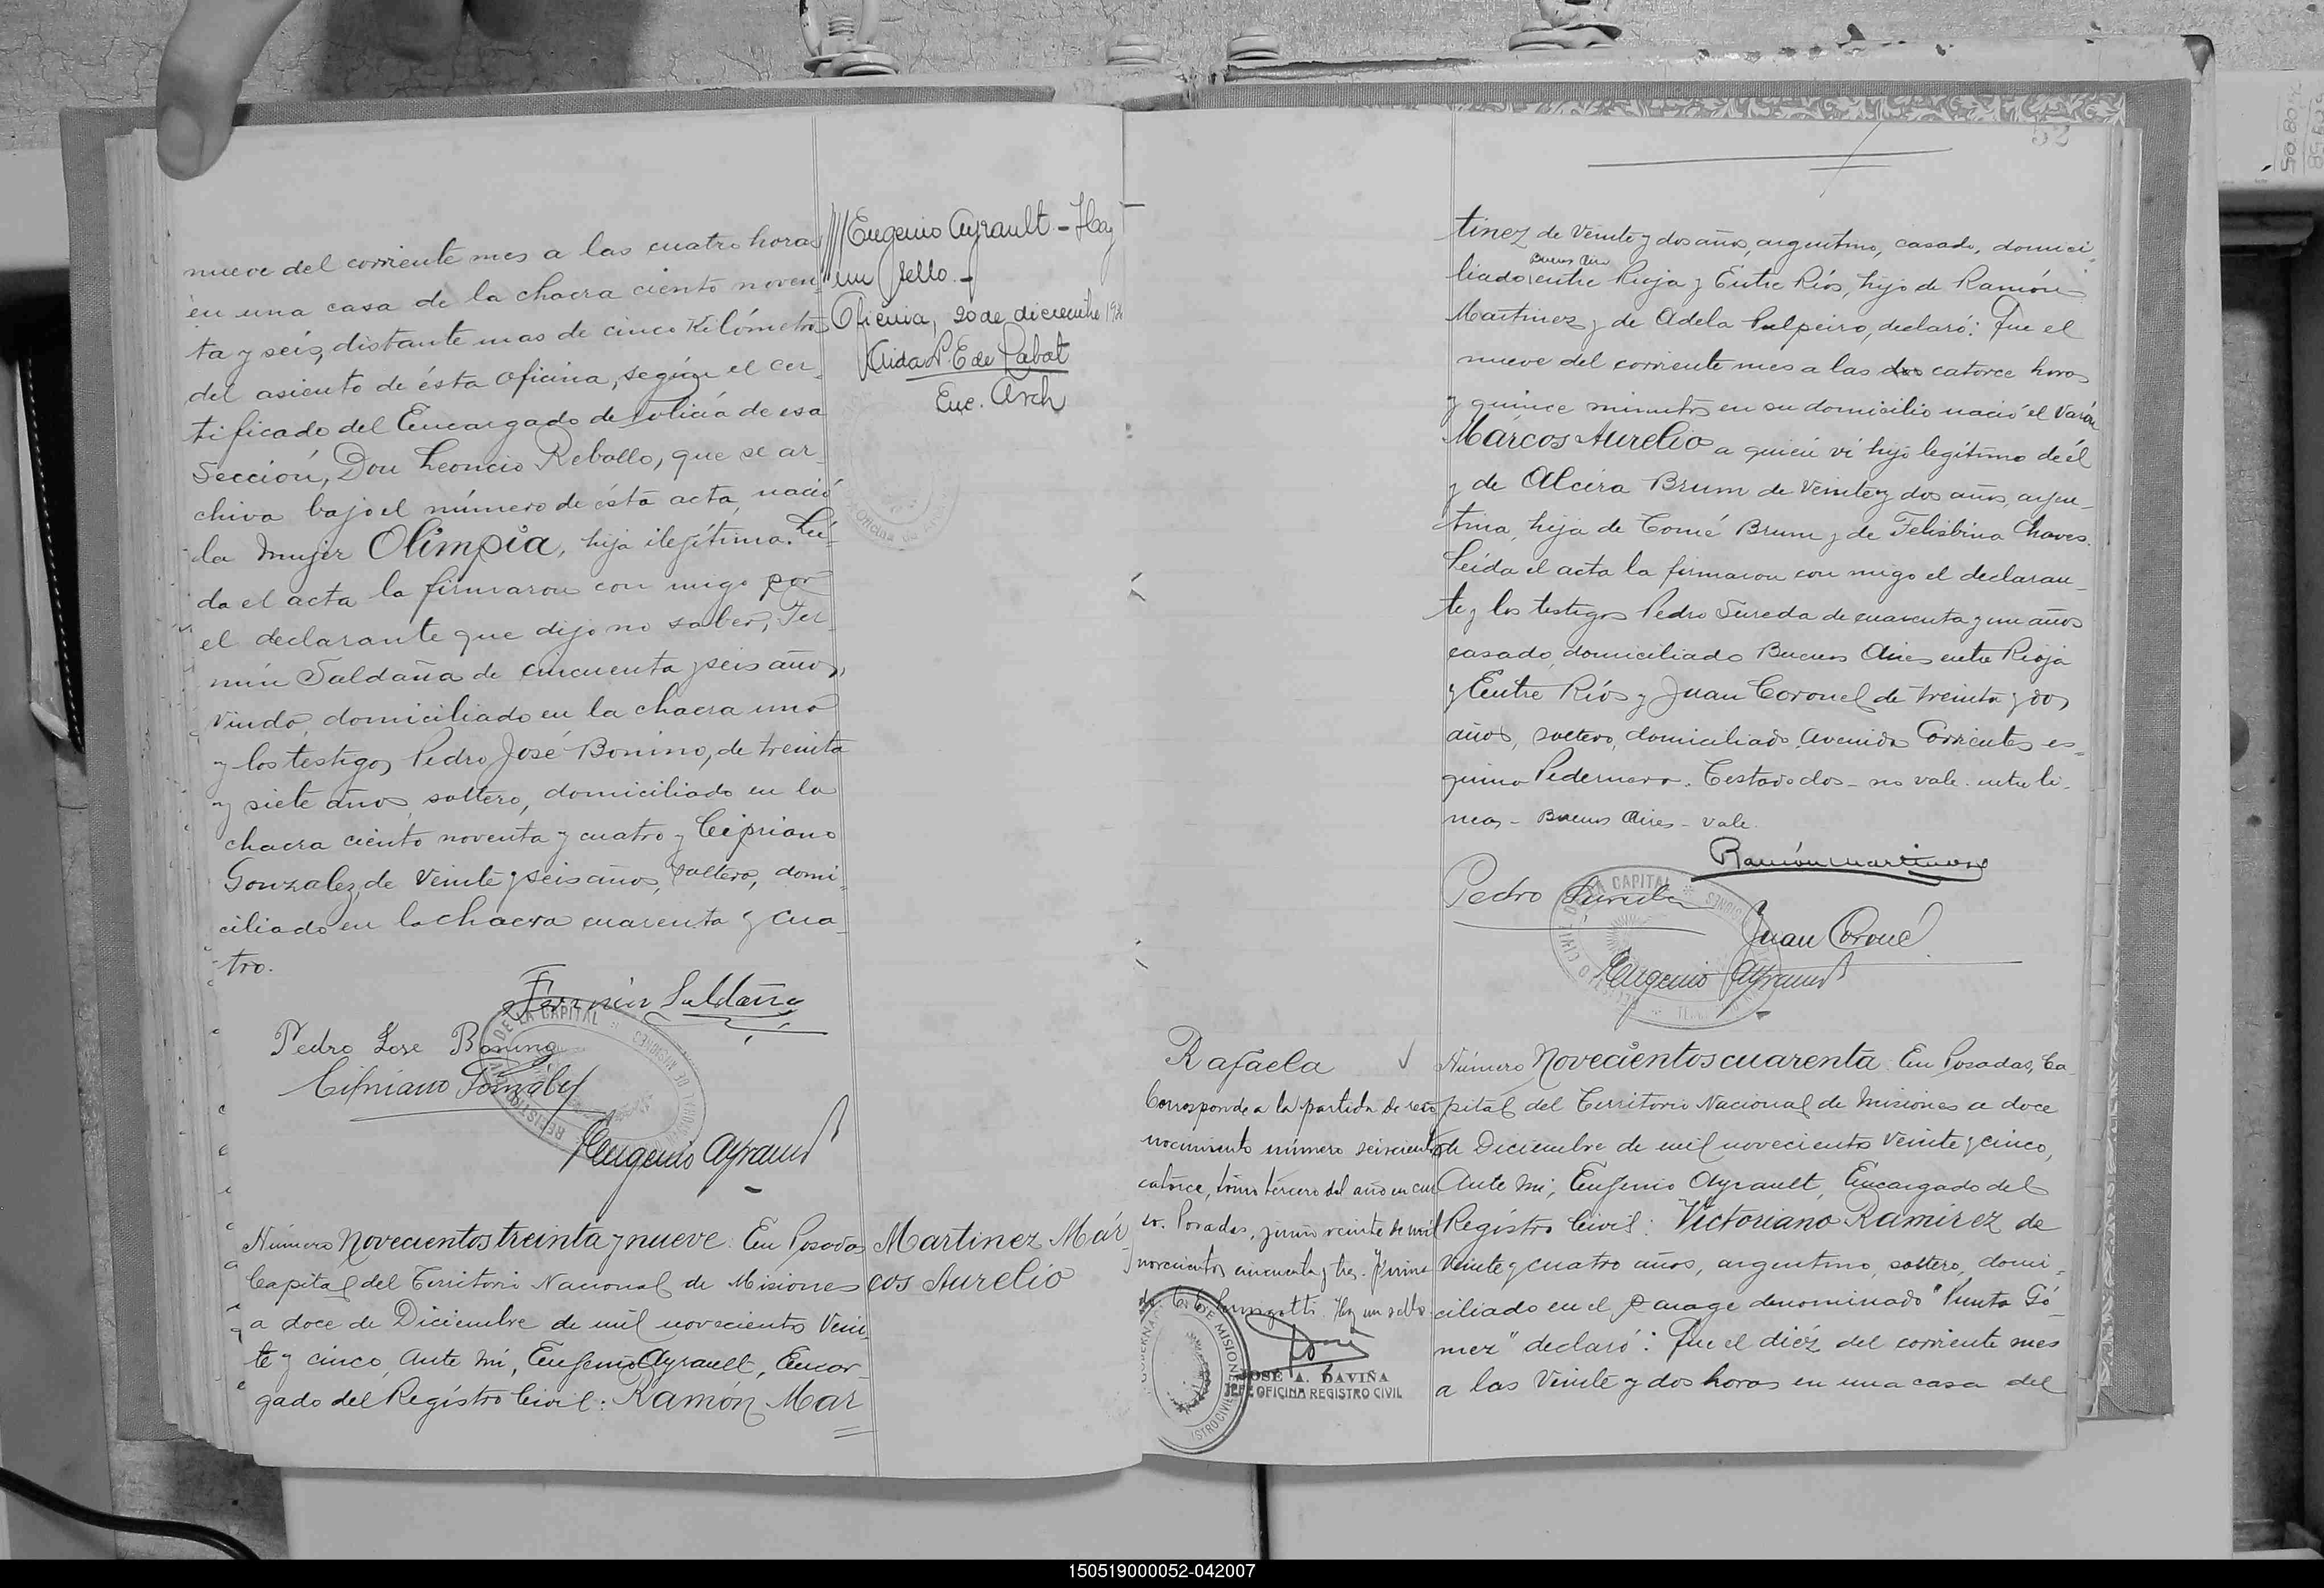 nueve del corriente mes a las cuatro horas
en una casa de la chacra ciento noven-
ta y seis, distante mas de cinco Kilómetros
del asiento de ésta oficina, según el cer-
tificado del Encargado de Policía de esa
Sección, Don Leoncio Reballo, que se ar-
chiva bajo el número de ésta acta, nació
la mujer Olimpia, hija ilegítima. Leí-
da el acta la firmaron con migo por
el declarante que dijo no saber, Fer-
mín Saldaña de cincuenta y seis años,
viudo, domiciliado en la chacra uno
y los testigos Pedro José Bonino, de treinta
y siete años, soltero, domiciliado en la
chacra ciento noventa y cuatro y Cipriano
Gonzalez, de veinte y seis años, soltero, domi-
ciliado en la chacra cuarenta y cua-
tro.
Fermín Saldaña
Pedro Jose Bonino
Cipriano
Eugenio Ayrault
Eugenio Ayrault - Hay
un sello. -
Oficina, 20 de diciembre
Aida P. E de Rabat
Enc. Arch
Número Novecientos treinta y nueve. En Posadas
Capital del Territorio Nacional de Misiones
a doce de Diciembre de mil novecientos Vein-
te y cinco, Ante mí, Eugenio Ayrault, Encar-
gado del Registro Civil: Ramón Mar
Martinez Már-
cos Aurelio
52
tinez de Veinte y dos años, argentino, casado, domici-
Buenos Aires
liado entre Rioja y Entre Ríos, hijo de Ramón
Martinez y de Adela Pulpeiro, declaró: Que el
nueve del corriente mes a las dos catorce horas
y quince minutos en su domicilio nació el Varón
Márcos Aurelio a quien ví hijo legítimo de él
y de Alcira Brum de Veinte y dos años, argen-
tina, hija de Tomé Brum y de Felisbina Chaves.
Leída el acta la firmaron con migo el declaran-
te y los testigos Pedro Sureda de cuarenta y un años
casado, domiciliado Buenos Aires entre Rioja
y Entre Ríos y Juan Coronel de treinta y dos
años, soltero, domiciliado Avenida Corrientes es-
quina Pedernera. Testado dos - no vale. entre lí-
neas - Buenos Aires - vale.
Ramón Martinez
Pedro Sureda
Juan Coronel
Eugenio Ayrault
Rafaela
Corresponde a la partida de reco-
nocimiento número seiscientos
catorce, tomo tercero del año en cur-
so. Posadas, junio veinte de mil
novecientos cincuenta y tres. Firma-
do. Hay un sello.
JOSE A. DAVIÑA
JEFE OFICINA REGISTRO CIVIL
Número Novecientos cuarenta. En Posadas, Ca-
pital del Territorio Nacional de Misiones a doce
de Diciembre de mil novecientos Veinte y cinco,
Ante mí, Eugenio Ayrault, Encargado del
Registro Civil: Victoriano Ramirez de
Veinte y cuatro años, argentino, soltero, domi-
ciliado en el parage denominado "Punta Gó-
mez" declaró: Que el diéz del corriente mes
a las Veinte y dos horas en una casa del
150519000052-042007